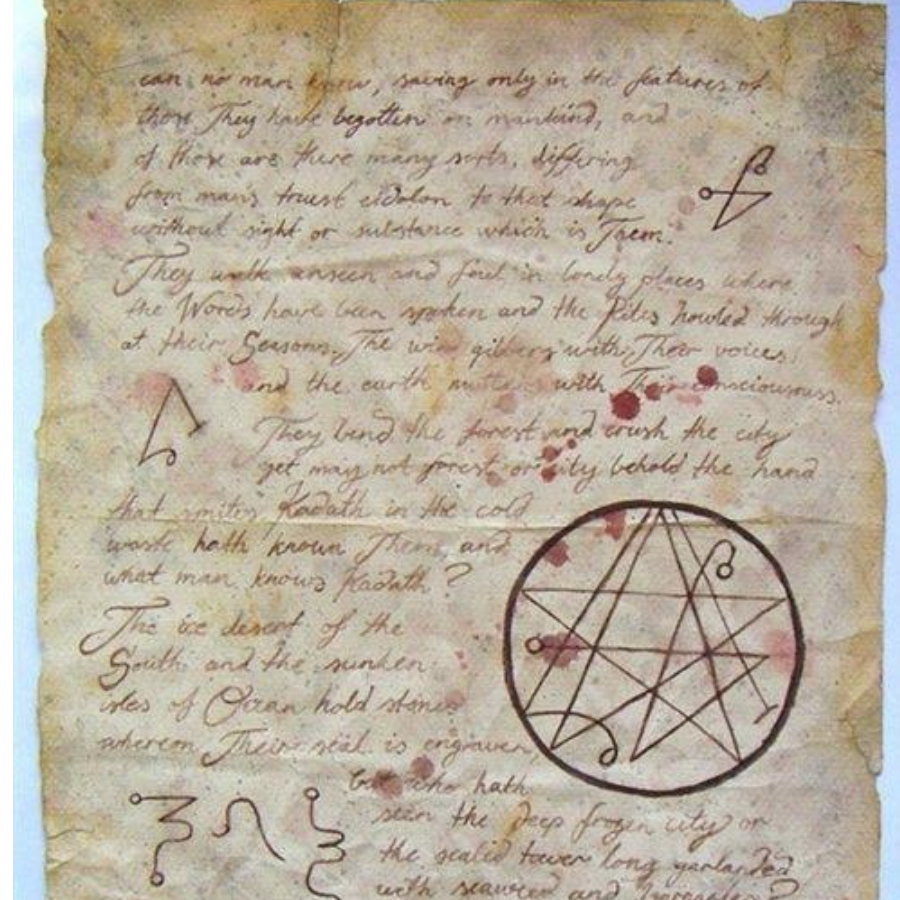 can no man know, saving only in the features of
those They have begotten on mankind, and
of those are there many sorts, differing
from man's truest eidolon to that shape
without sight or substance which is Them.
They walk unseen and foul in lonely places where
the Words have been spoken and the Rites howled through
at their Seasons. The win gibbers with Their voices
and the earth mutters with Their consciousness.
They bend the forest and crush the city
yet may not forest or city behold the hand
that smites Kadath in the cold
waste hath known Them and
what man knows Kadath?
The ice desert of the
South and the sunken
isles of Ocean hold stones
whereon Their seal is engraven
but who hath
seen the deep frozen city or
the sealed tower long garlanded
with seaweed and